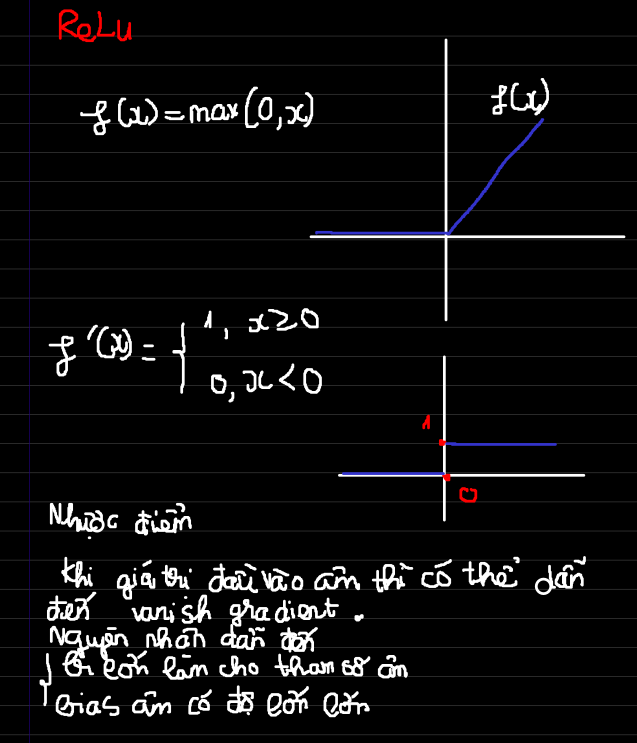 ReLu
f(x) = max(0,x)
f(x)
f'(x) = { 1, x ≥ 0
0, x < 0
1
0
Nhược điểm
Khi giá trị đầu vào âm thì có thể dẫn
đến vanish gradient.
Nguyên nhân dẫn đến
{ lr lớn làm cho tham số âm
bias âm có độ lớn lớn